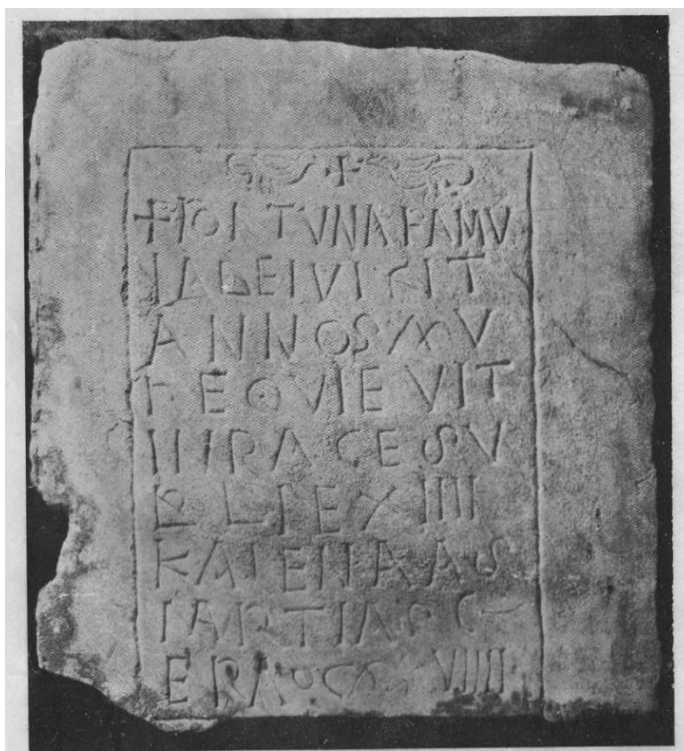 + FORTVNA FAMV
LA DEI VIXIT
ANNOS
REQVIEVIT
IN PACE SV
B DIE XIIII
KALENDAS
MARTIAS
ERA